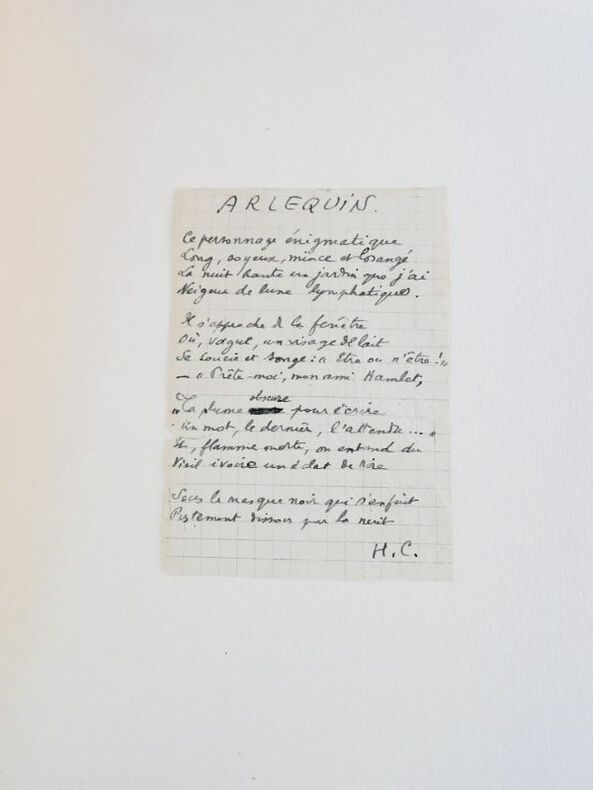 ARLEQUIN.
Ce personnage énigmatique
Long, soyeux, mince et losangé
La nuit hante un jardin que j'ai
Neigeux de lune lymphatique.
Il s'approche de la fenêtre
Où, vague, un visage de lait
Se soucie et songe : "Etre ou n'être !"
— "Prête-moi, mon ami Hamlet,
"Ta plume obscure pour écrire
"Un mot, le dernier, l'attendu ... "
Et, flamme morte, on entend du
Vieil ivoire un éclat de rire
Sous le masque noir qui s'enfuit
Prestement dissous par la nuit
H.C.